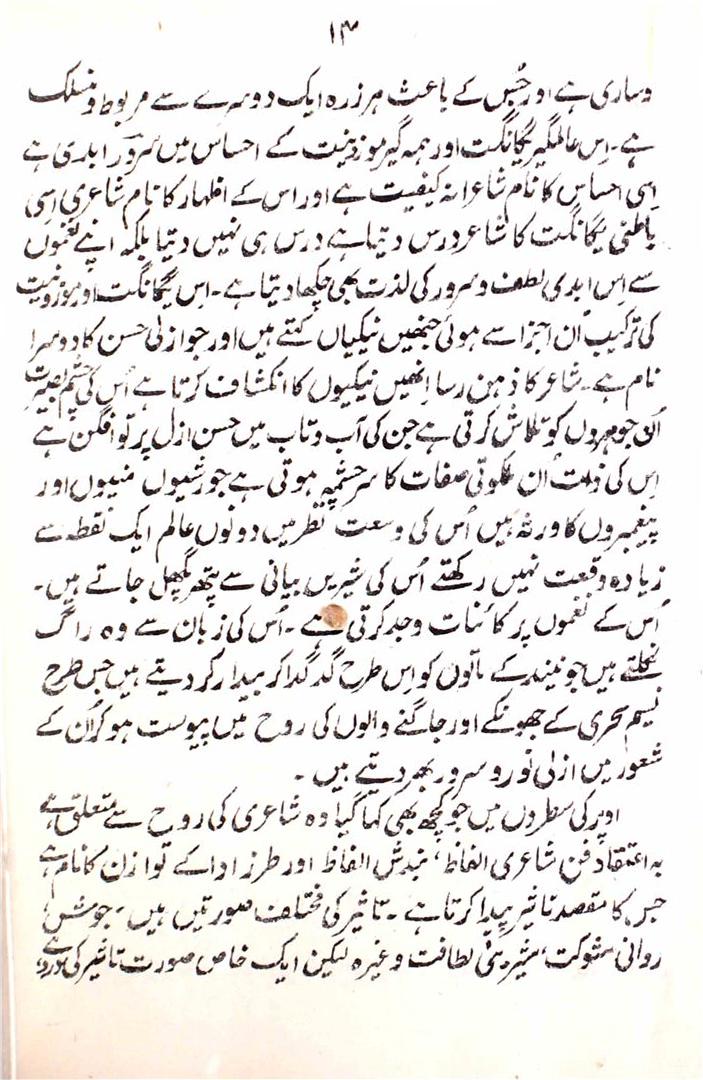 ۱۳
وساری ہے اور جس کے باعث ہر زرہ ایک دوسرے سے مربوط و منسلک
ہے۔ اِس عالمگیر یگانگت اور ہمہ گیر موزونیت کے احساس میں سرور ابدی ہے
اِسی احساس کا نام شاعرانہ کیفیت ہے اور اس کے اظہار کا نام شاعری اِسی
باطنی یگانگت کا شاعر درس دیتا ہے درس ہی نہیں دیتا بلکہ اپنے نغموں
سے اِس ابدی لطف و سرور کی لذت بھی چکھا دیتا ہے۔ اِس یگانگت اور موزونیت
کی ترکیب اُن اجزا سے ہوئی جنھیں نیکیاں کہتے ہیں اور جو ازلی حسن کا دوسرا
نام ہے۔ شاعر کا ذہن رسا اِنھیں نیکیوں کا انکشاف کرتا ہے اُس کی چشم بصیرت
اُن جوہروں کو تلاش کرتی ہے جن کی آب و تاب میں حسن ازل پر توافگن ہے
اِس کی ذات اُن ملکوتی صفات کا سرچشمہ ہوتی ہے جو رشیوں منیوں اور
پیغمبروں کا ورثہ ہیں اُس کی وسعت نظر میں دونوں عالم ایک نقطہ سے
زیادہ وقعت نہیں رکھتے اُس کی شیریں بیانی سے پتھر پگھل جاتے ہیں۔
اُس کے نغموں پر کائنات وجد کرتی ہے۔ اُس کی زبان سے وہ راگ
نکلتے ہیں جو نیند کے ماتوں کو اِس طرح گدگدا کر بیدار کر دیتے ہیں جس طرح
نسیم سحری کے جھونکے اور جاگنے والوں کی روح میں پیوست ہو کر اُن کے
شعور میں ازلی نور و سرور بھر دیتے ہیں۔
اوپر کی سطروں میں جو کچھ بھی کہا گیا وہ شاعری کی روح سے متعلق ہے
بہ اعتقاد فن شاعری الفاظ، بندش الفاظ اور طرز ادا کے توازن کا نام ہے
جس کا مقصد تاثیر پیدا کرتا ہے۔ تاثیر کی مختلف صورتیں ہیں۔ جوش
روانی، شوکت، شیرینی لطافت وغیرہ لیکن ایک خاص صورت تاثیر کی درد ہے